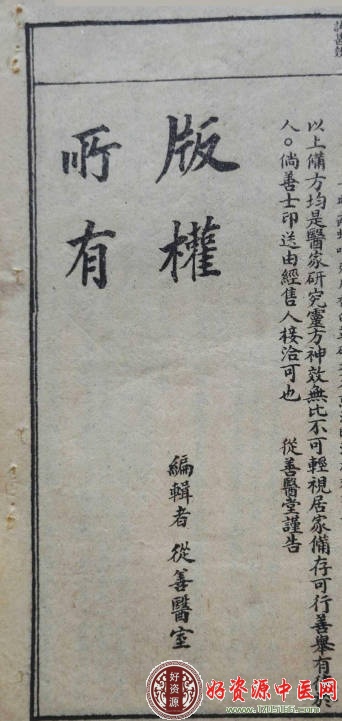 以上備方均是醫家研究靈方神效無比不可輕視居家備存可行善舉有
人。倘善士印送由經售人接洽可也 從善醫堂謹告
版權
所有
編輯者 從善醫室
好资源
好资源中医网